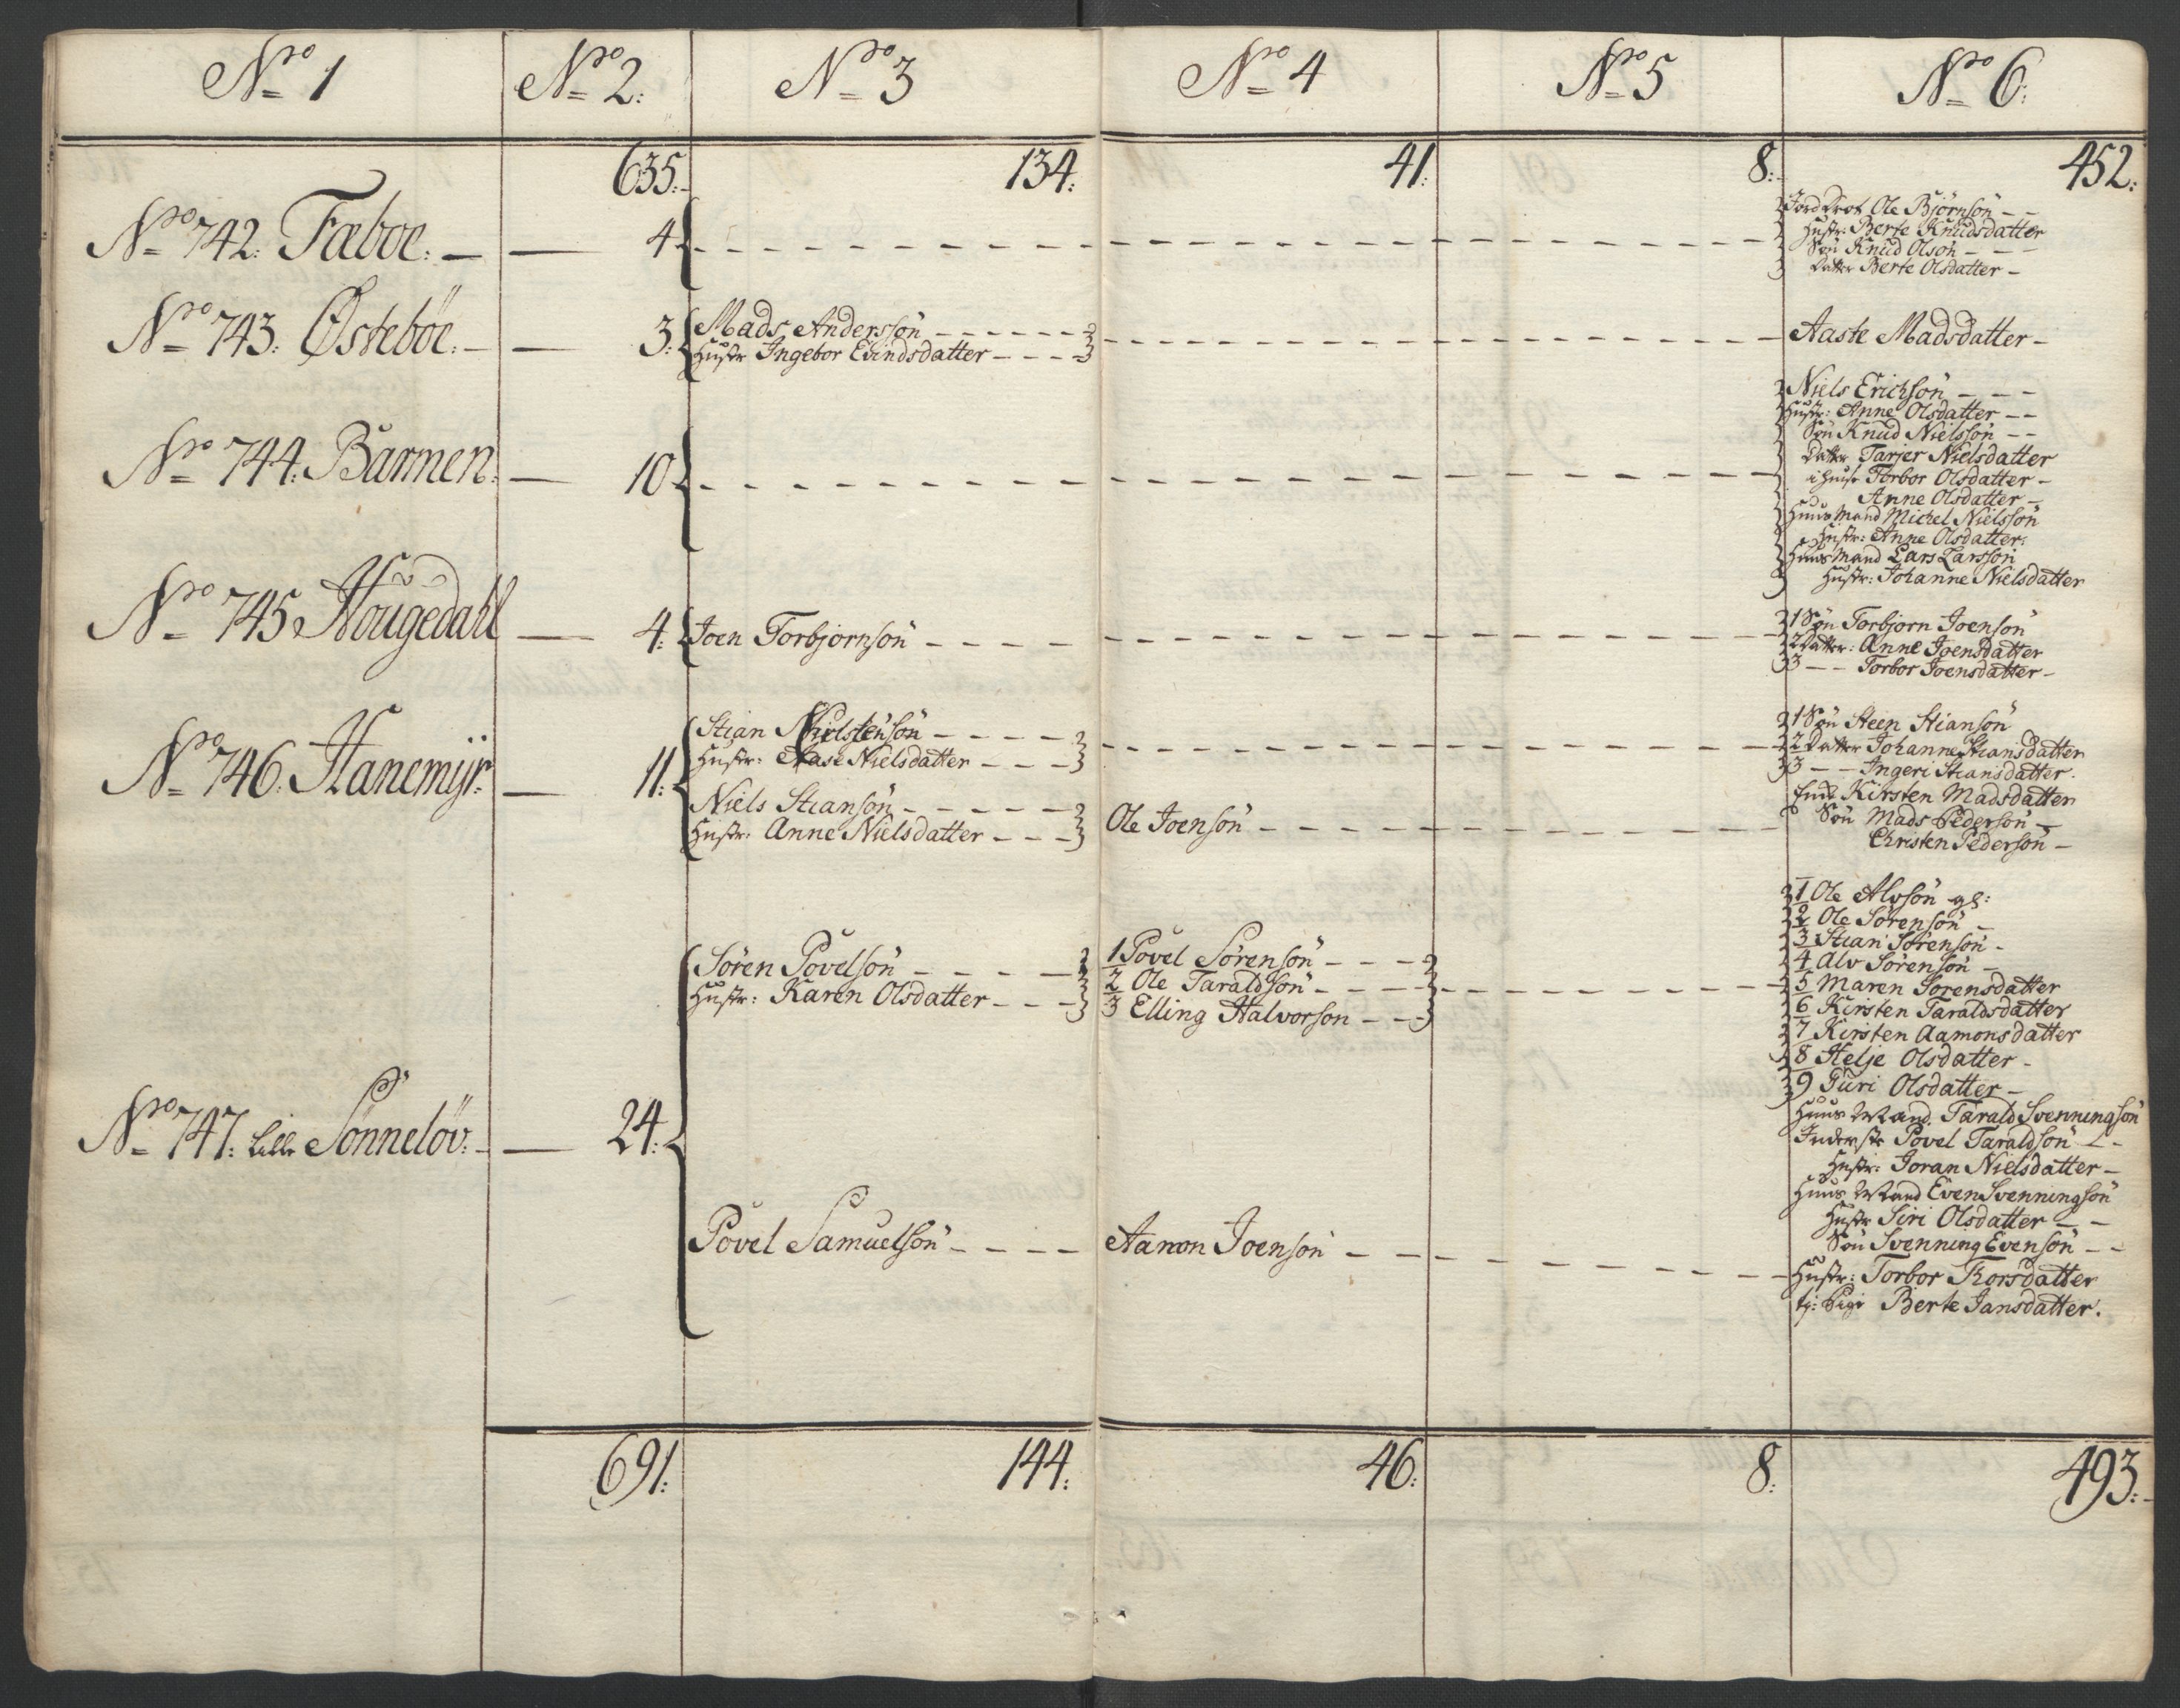 Nro 1 Nro 2: Nro 3 Nro 4 Nro 5 Nro 6:
635. 134. 41. 8. 452.
Nro 742: Fæboe. 4
Jorddrot Ole Bjørnsøn
Hustr: Berte Knudsdatter
Søn Knud Olsøn
Datter Berte Olsdatter
Nro 743: Østebøe. 3.
Mads Anderssøn
Hustr Ingebor Evindsdatter
Aaste Madsdatter
Nro 744: Barmen. 10
Niels Erichsøn
Hustr: Anne Olsdatter
Søn Knud Nielssøn
Datter Tarjer Nielsdatter
i Huuse Torbor Olsdatter
Anne Olsdatter
Huus Mand Michel Nielssøn
Hustr: Anne Olsdatter.
Huus Mand Lars Larssøn
Hustr: Johanne Nielsdatter
Nro 745 Hougedahl 4.
Joen Torbjørnsøn
1 Søn Torbjørn Joensøn
2 Datter: Anne Joensdatter
3 Torbor Joensdatter
Nro 746. Hanemyr. 11.
Stian Nielstensøn
Hustr: Aase Nielsdatter
Niels Stiansøn
Hustr: Anne Nielsdatter
Ole Joensøn
1 Søn Steen Stiansøn
2 Datter Johanne Stiansdatter
3 Ingeri Stiansdatter.
Kirsten Madsdatter
Søn Mads Pedersøn
Christen Pedersøn
Nro 747. Lille Sønneløv. 24.
Søren Povelsøn
Hustr: Karen Olsdatter
1 Povel Sørensøn
2 Ole Taraldsøn
3 Elling Halvorsøn
1 Ole Alvsøn gl:
2 Ole Sørensøn
3 Stian Sørensøn
4 Alv Sørensøn
5 Maren Sørensdatter
6 Kirsten Taraldsdatter
7 Kirsten Aamonsdatter
8 Helje Olsdatter
9 Guri Olsdatter
Huus Mand. Tarald Svenningsøn
Inderste Povel Taraldsøn
Hustr: Joran Nielsdatter
Huus Mand Even Svenningsøn
Hustr Siri Olsdatter
Søn Svenning Evensøn
Povel Samuelsøn
Aamon Joensøn
Hustr: Torbor Torsdatter
tj: Pige Berte Jansdatter.
691. 144. 46. 8. 493.